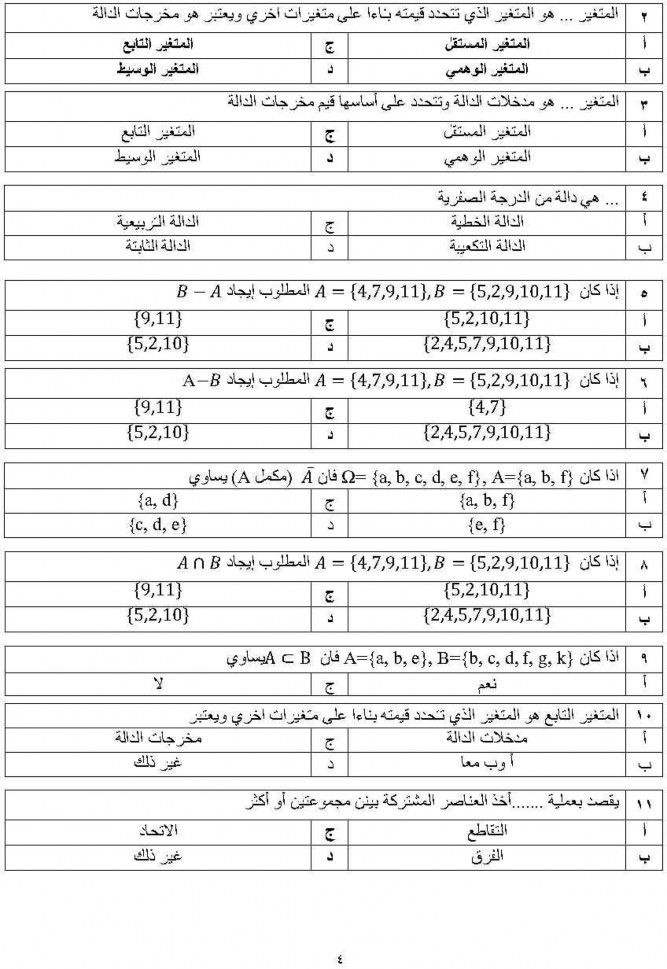 ٢ المتغير ... هو المتغير الذي تتحدد قيمته بناءا على متغيرات اخري ويعتبر هو مخرجات الدالة
أ المتغير المستقل ج المتغير التابع
ب المتغير الوهمي د المتغير الوسيط
٣ المتغير ... هو مدخلات الدالة وتتحدد علي أساسها قيم مخرجات الدالة
أ المتغير المستقل ج المتغير التابع
ب المتغير الوهمي د المتغير الوسيط
٤ ... هي دالة من الدرجة الصفرية
أ الدالة الخطية ج الدالة التربيعية
ب الدالة التكعيبة د الدالة الثابتة
٥ إذا كان A = {4,7,9,11}, B = {5,2,9,10,11} المطلوب إيجاد B − A
أ {5,2,10,11} ج {9,11}
ب {2,4,5,7,9,10,11} د {5,2,10}
٦ إذا كان A = {4,7,9,11}, B = {5,2,9,10,11} المطلوب إيجاد A−B
أ {4,7} ج {9,11}
ب {2,4,5,7,9,10,11} د {5,2,10}
٧ اذا كان Ω= {a, b, c, d, e, f}, A={a, b, f} فان Ā (مكمل A) يساوي
أ {a, b, f} ج {a, d}
ب {e, f} د {c, d, e}
٨ إذا كان A = {4,7,9,11}, B = {5,2,9,10,11} المطلوب إيجاد A ∩ B
أ {5,2,10,11} ج {9,11}
ب {2,4,5,7,9,10,11} د {5,2,10}
٩ اذا كان A={a, b, e}, B={b, c, d, f, g, k} فان A ⊂ B يساوي
أ نعم ج لا
١٠ المتغير التابع هو المتغير الذي تتحدد قيمته بناءا على متغيرات اخري ويعتبر
أ مدخلات الدالة ج مخرجات الدالة
ب أ وب معا د غير ذلك
١١ يقصد بعملية .......أخذ العناصر المشتركة بينن مجموعتين أو أكثر
أ التقاطع ج الاتحاد
ب الفرق د غير ذلك
٤